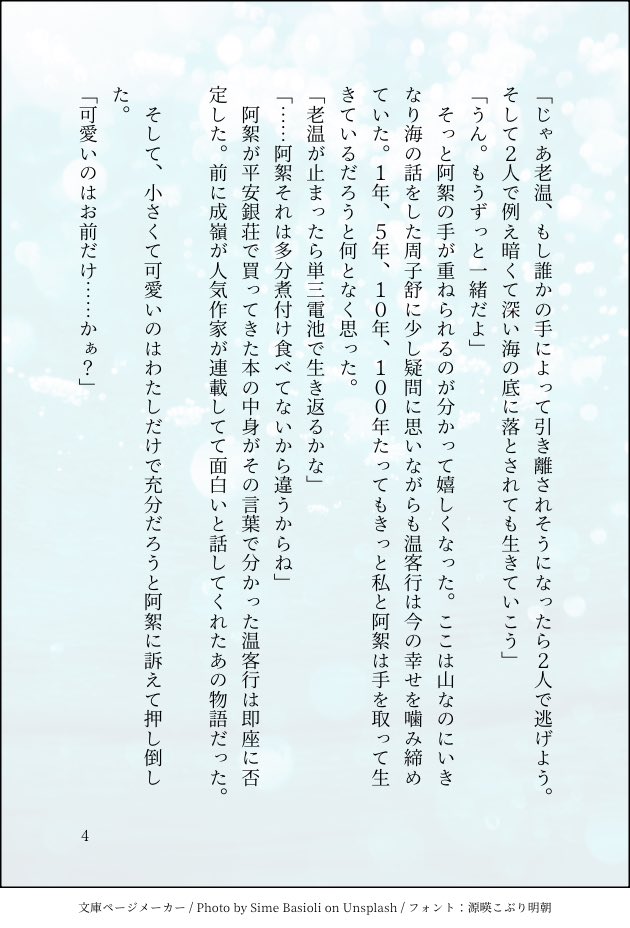 「じゃあ老温、もし誰かの手によって引き離されそうになったら２人で逃げよう。
そして２人で例え暗くて深い海の底に落とされても生きていこう」
「うん。もうずっと一緒だよ」
そっと阿絮の手が重ねられるのが分かって嬉しくなった。ここは山なのにいき
なり海の話をした周子舒に少し疑問に思いながらも温客行は今の幸せを噛み締め
ていた。１年、５年、１０年、１００年たってもきっと私と阿絮は手を取って生
きているだろうと何となく思った。
「老温が止まったら単三電池で生き返るかな」
「……阿絮それは多分煮付け食べてないから違うからね」
阿絮が平安銀荘で買ってきた本の中身がその言葉で分かった温客行は即座に否
定した。前に成嶺が人気作家が連載してて面白いと話してくれたあの物語だった。
そして、小さくて可愛いのはわたしだけで充分だろうと阿絮に訴えて押し倒し
た。
「可愛いのはお前だけ……かぁ？」
4
文庫ページメーカー / Photo by Sime Basioli on Unsplash / フォント：源暎こぶり明朝